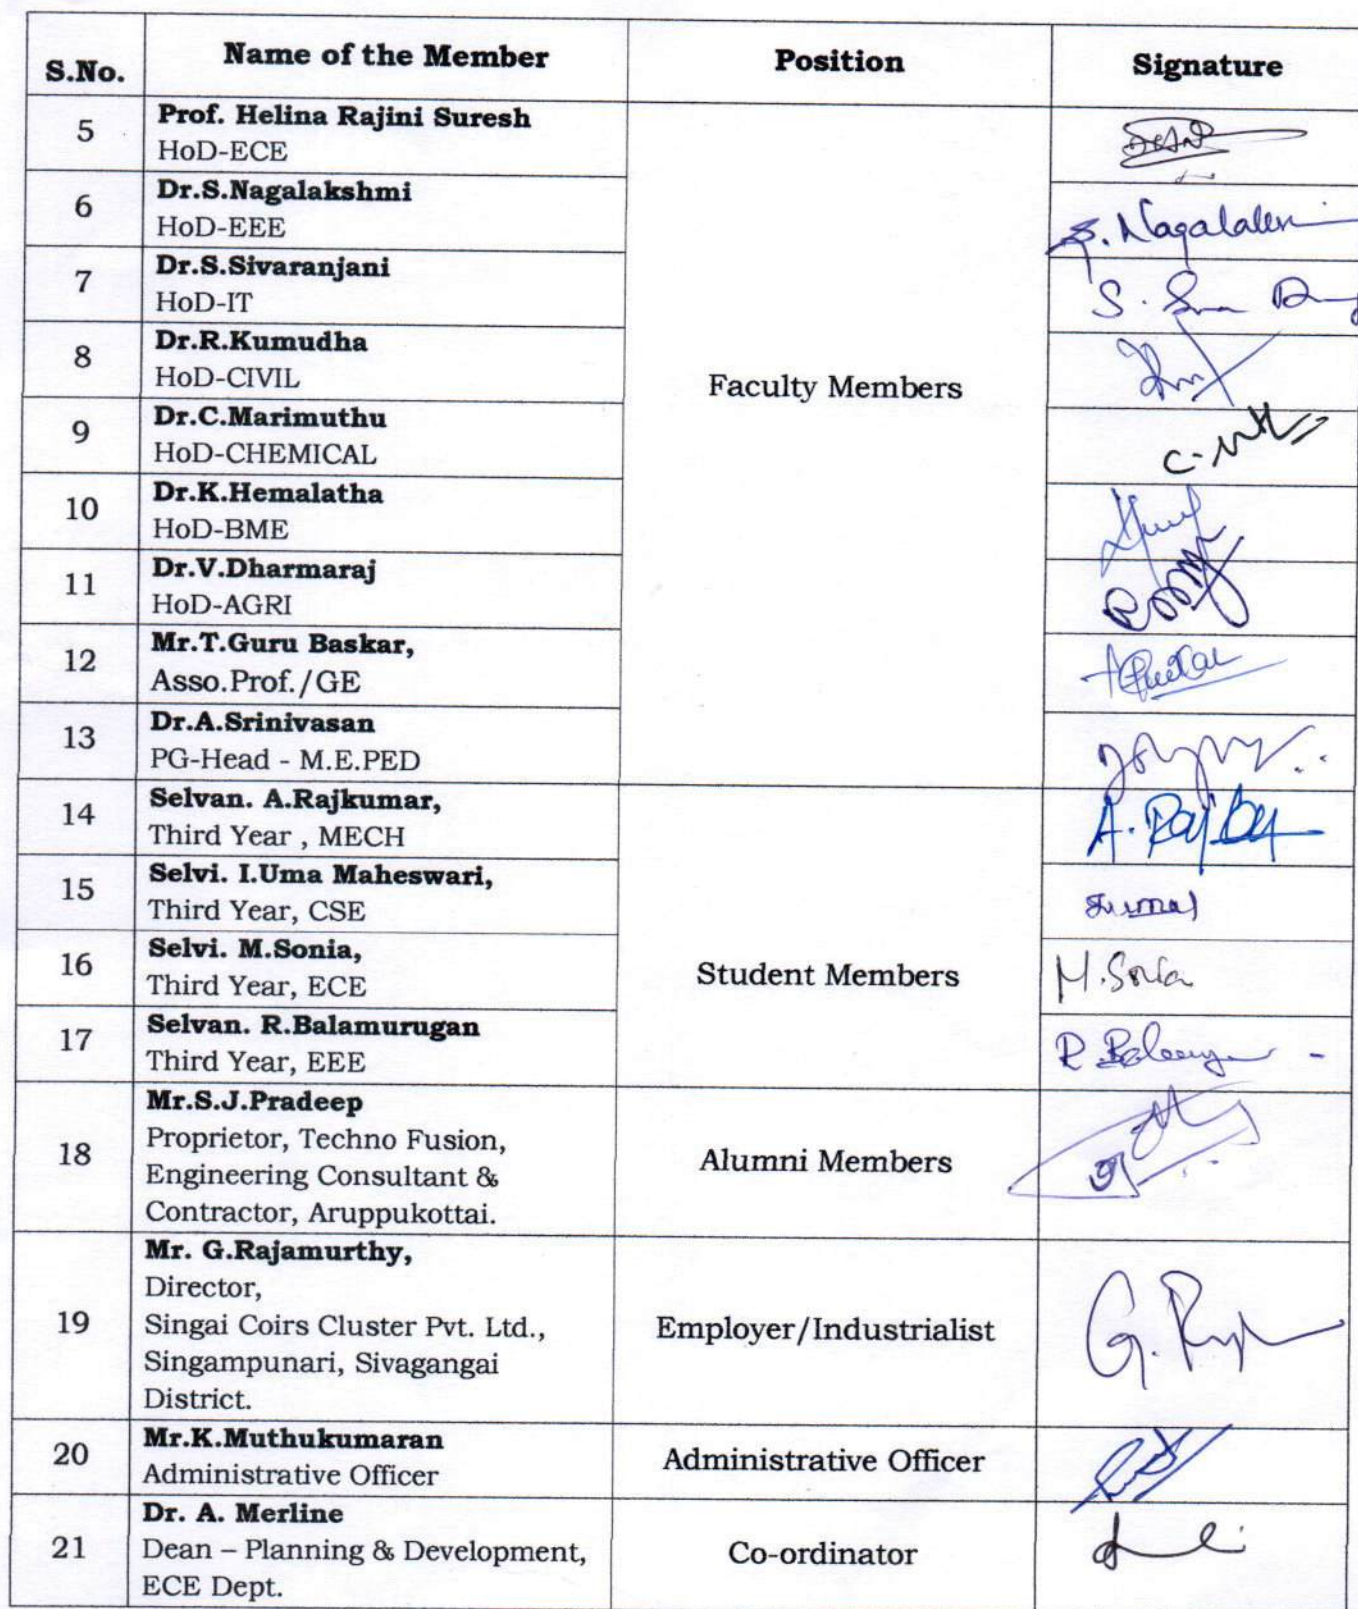 S.No. Name of the Member Position Signature
5 Prof. Helina Rajini Suresh
HoD-ECE
6 Dr.S.Nagalakshmi
HoD-EEE
7 Dr.S.Sivaranjani
HoD-IT
8 Dr.R.Kumudha
HoD-CIVIL
Faculty Members
9 Dr.C.Marimuthu
HoD-CHEMICAL
10 Dr.K.Hemalatha
HoD-BME
11 Dr.V.Dharmaraj
HoD-AGRI
12 Mr.T.Guru Baskar,
Asso.Prof./GE
13 Dr.A.Srinivasan
PG-Head - M.E.PED
14 Selvan. A.Rajkumar,
Third Year , MECH
15 Selvi. I.Uma Maheswari,
Third Year, CSE
16 Selvi. M.Sonia,
Third Year, ECE
Student Members
M.Sonia
17 Selvan. R.Balamurugan
Third Year, EEE
18 Mr.S.J.Pradeep
Proprietor, Techno Fusion,
Engineering Consultant &
Contractor, Aruppukottai.
Alumni Members
19 Mr. G.Rajamurthy,
Director,
Singai Coirs Cluster Pvt. Ltd.,
Singampunari, Sivagangai
District.
Employer/Industrialist
20 Mr.K.Muthukumaran
Administrative Officer
Administrative Officer
21 Dr. A. Merline
Dean – Planning & Development,
ECE Dept.
Co-ordinator